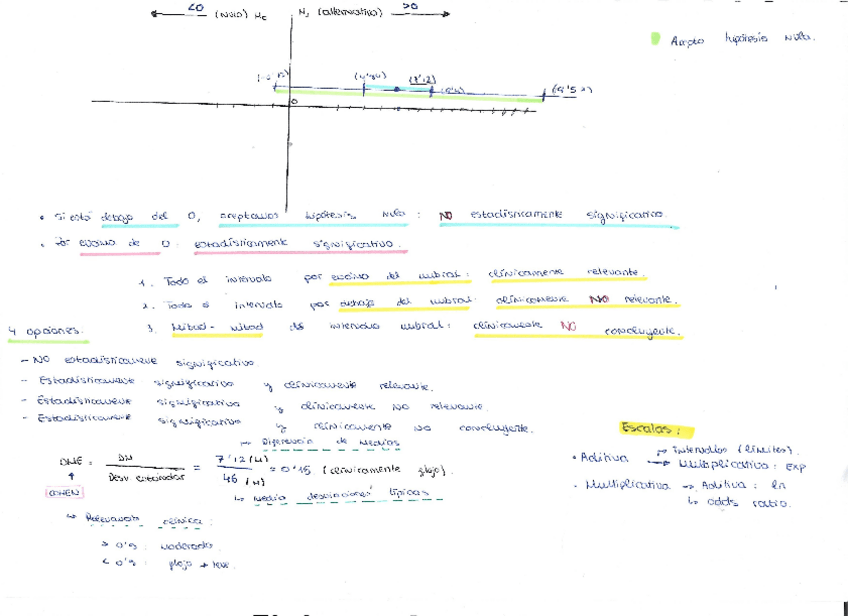 <0 (Nula) H₀ H₁ (alternativa) >0
Acepto hipótesis nula.
(7'12)
0
• Si está debajo del 0, aceptamos hipótesis nula: NO estadísticamente significativo.
• Por encima de 0: estadísticamente significativo.
1. Todo el intervalo por encima del umbral: clínicamente relevante.
2. Todo el intervalo por debajo del umbral: clínicamente NO relevante.
3. Mitad-mitad del intervalo umbral: clínicamente NO concluyente.
4 opciones.
- NO estadísticamente significativo
- Estadísticamente significativo y clínicamente relevante.
- Estadísticamente significativo y clínicamente NO relevante.
- Estadísticamente significativo y clínicamente NO concluyente.
↪ Diferencia de Medias
DME = DM / Desv estandar = 7'12 (H) / 46 (H) = 0'15 (clínicamente flojo).
↪ Media desviaciones típicas
COHEN
↪ Relevancia clínica:
> 0'5: moderado
< 0'5: flojo
Escalas:
• Aditiva → intervalos (límites).
→ Multiplicativa: Exp
- Multiplicativa → Aditiva: ln
↳ odds ratio.